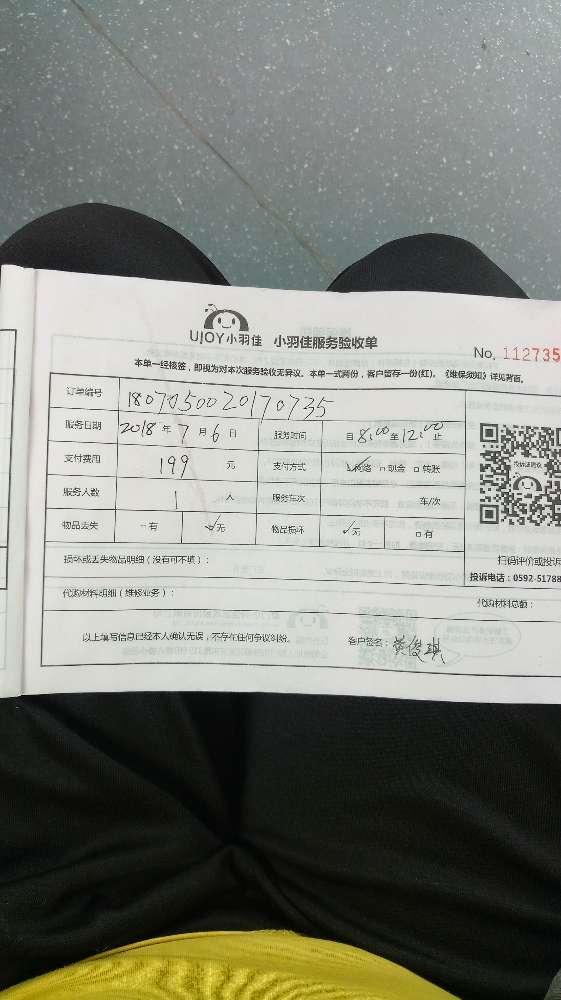 UJOY小羽佳 小羽佳服务验收单
No. 112735
本单一经核签，即视为对本次服务验收无异议。本单一式两份，客户留存一份(红)。《维保须知》详见背面。
订单编号 1807050020170735
服务日期 2018年7月6日 服务时间 自8:00至12:00止
支付费用 199元 支付方式 ☑网络 □现金 □转账
服务人数 1人 服务车次 车/次
物品丢失 □有 ☑无 物品损坏 ☑无 □有
投诉或建议
扫码评价或投诉
损坏或丢失物品明细（没有可不填）：
投诉电话：0592-51788
代购材料明细（维修业务）：
代购材料总额：
以上填写信息已经本人确认无误，不存在任何争议纠纷。 客户签名：黄俊琪